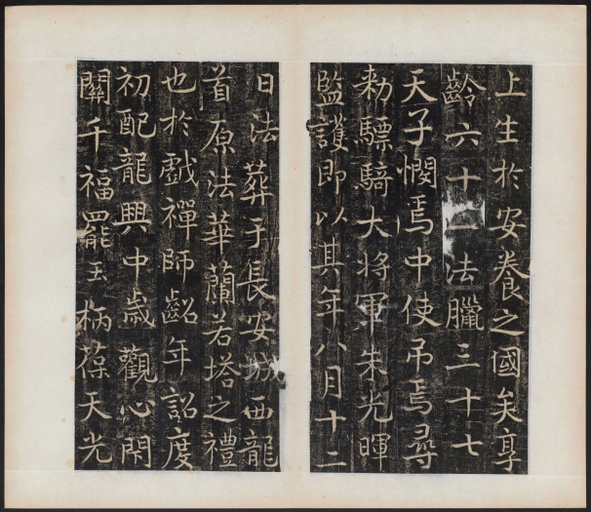 上生於安養之國矣享
齡六十一法臘三十七
天子憫焉中使吊焉尋
勑驃騎大將軍朱光暉
監護即以其年八月十二
日法葬于長安城西龍
首原法華蘭若塔之禮
也於戲禪師齠年詔度
初配龍興中歲觀心閑
關千福罷王柄葆天光